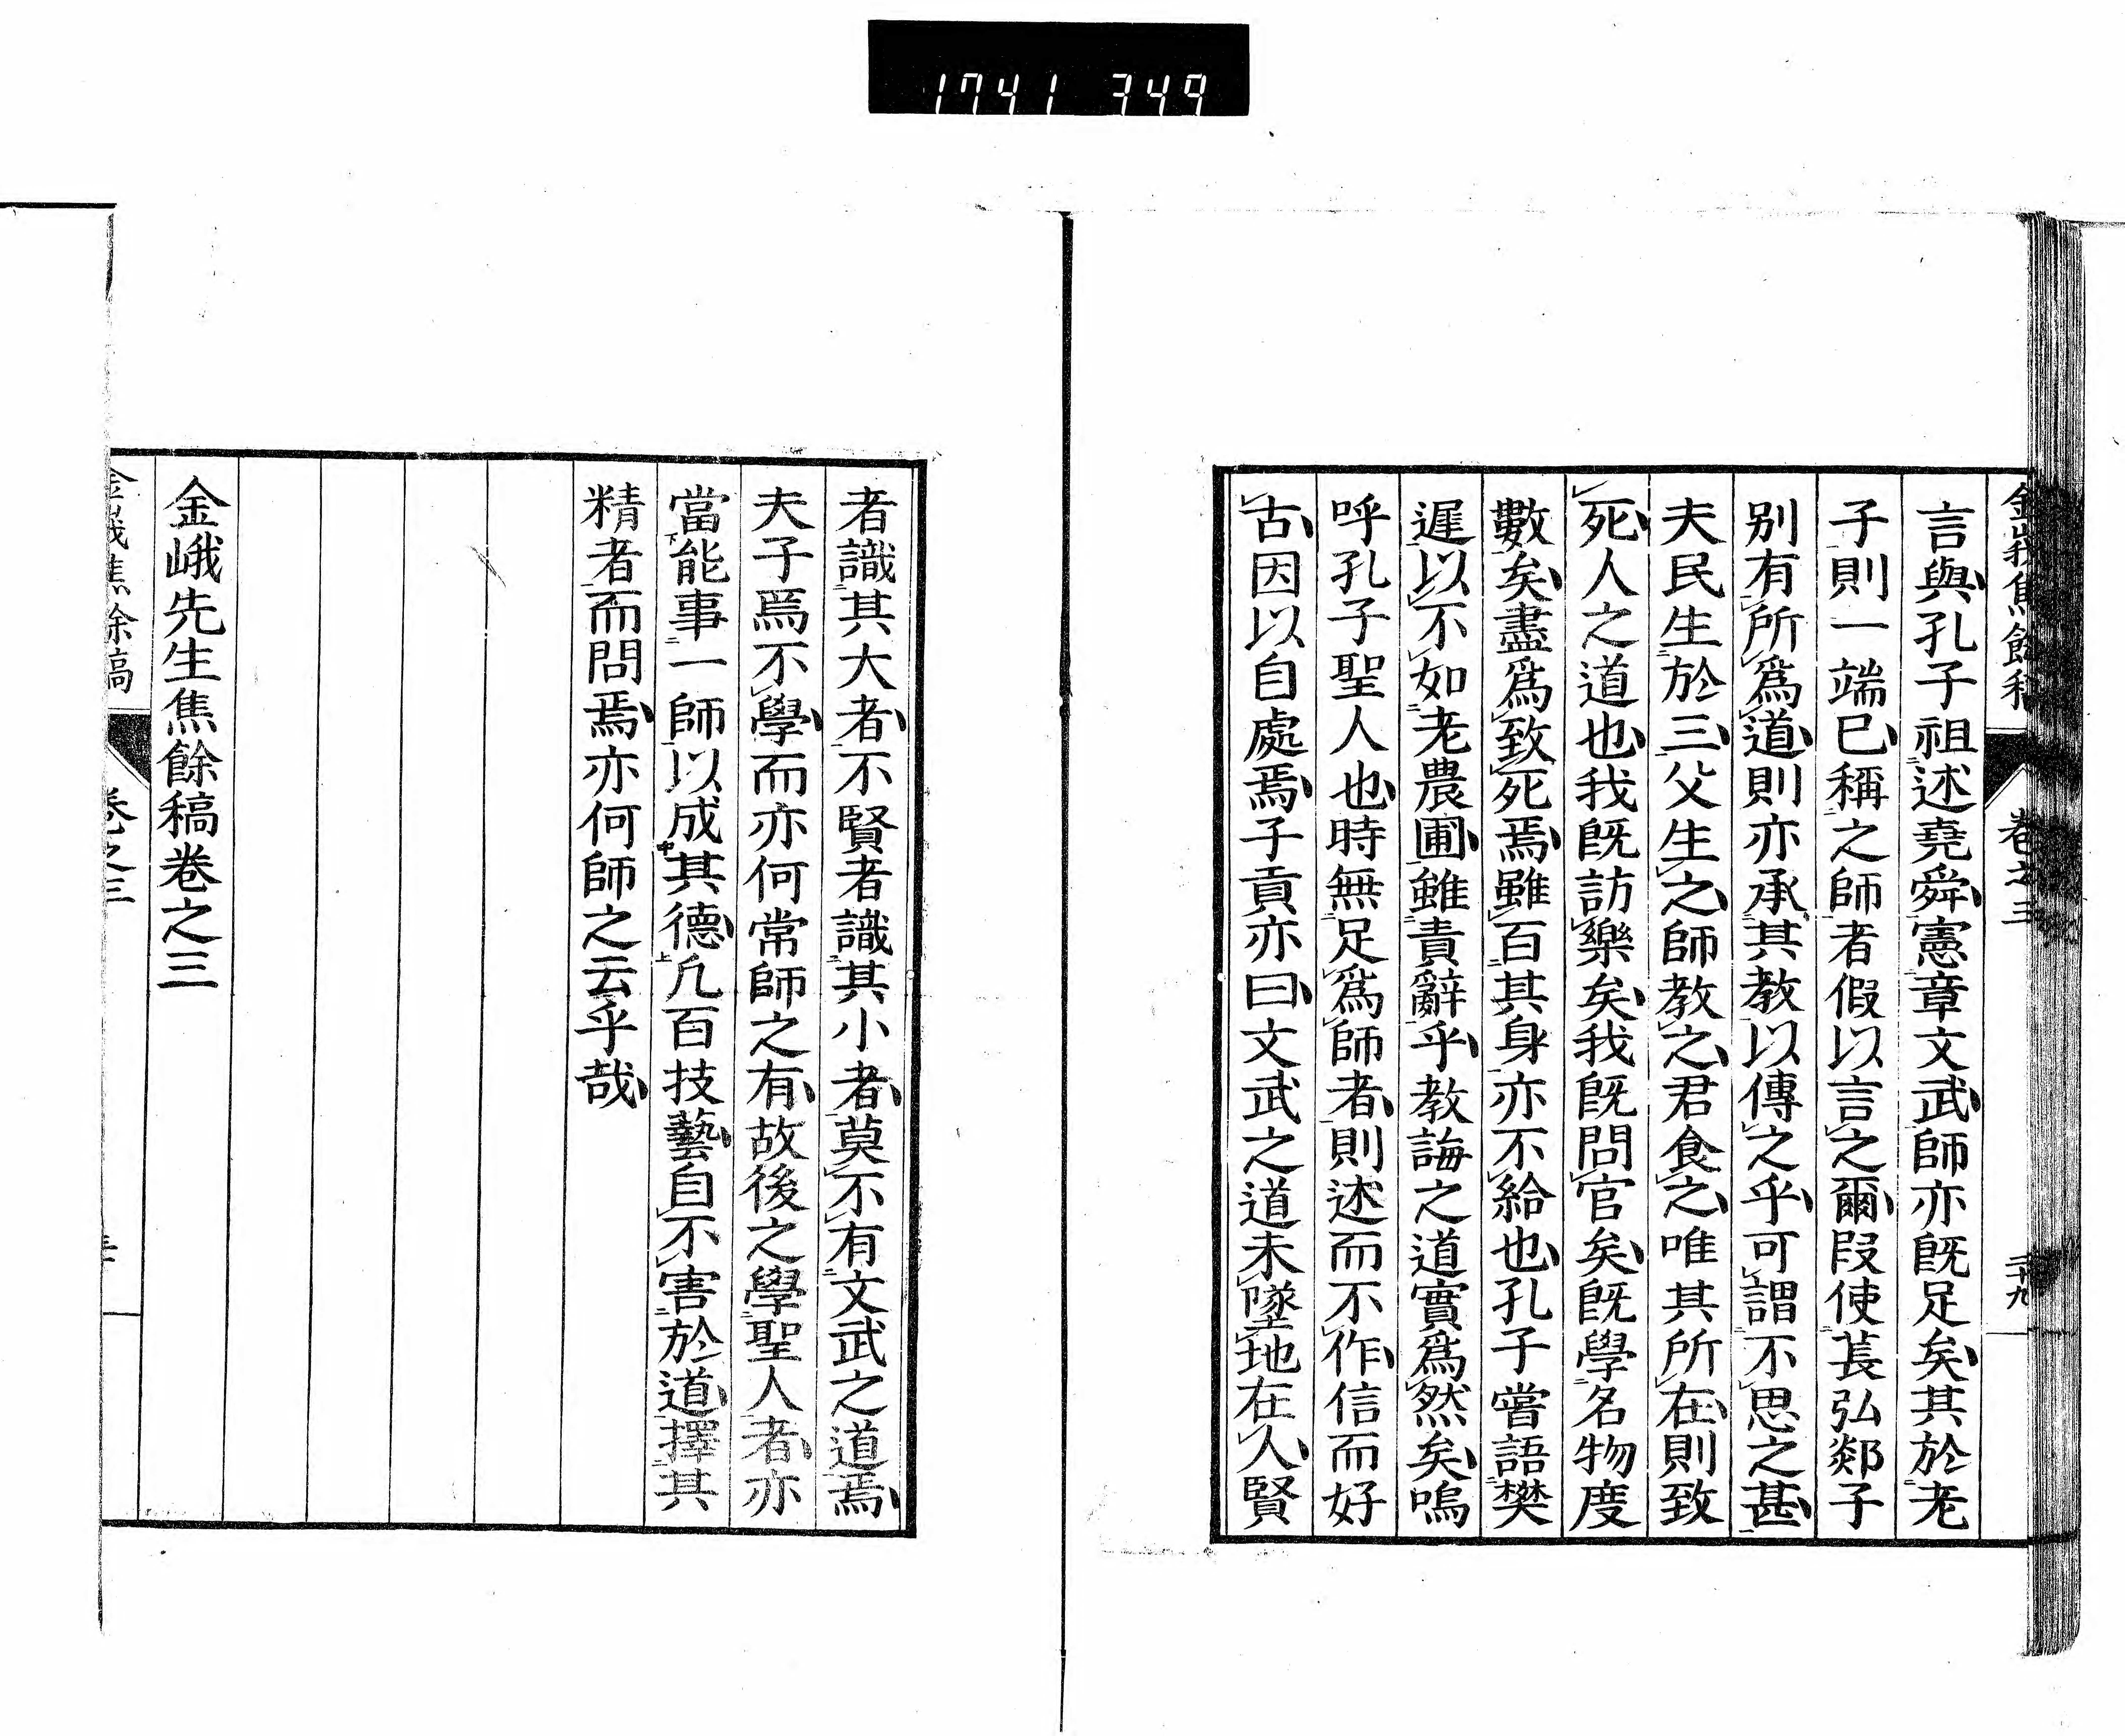 1741 349
金峩焦餘稿 卷之三 二十九
言與孔子祖述堯舜憲章文武師亦既足矣其於老
子則一端已稱之師者假以言之爾叚使萇弘郯子
別有所爲道則亦承其教以傳之乎可謂不思之甚
夫民生於三父生之師教之君食之唯其所在則致
死人之道也我既訪樂矣我既問官矣既學名物度
數矣盡爲致死焉雖百其身亦不給也孔子嘗語樊
遲以不如老農圃雖責辭乎教誨之道實爲然矣嗚
呼孔子聖人也時無足爲師者則述而不作信而好
古因以自處焉子貢亦曰文武之道未墜地在人賢
者識其大者不賢者識其小者莫不有文武之道焉
夫子焉不學而亦何常師之有故後之學聖人者亦
當能事一師以成其德凢百技藝自不害於道擇其
精者而問焉亦何師之云乎哉
金峨先生焦餘稿卷之三
金峩焦餘稿 卷之三